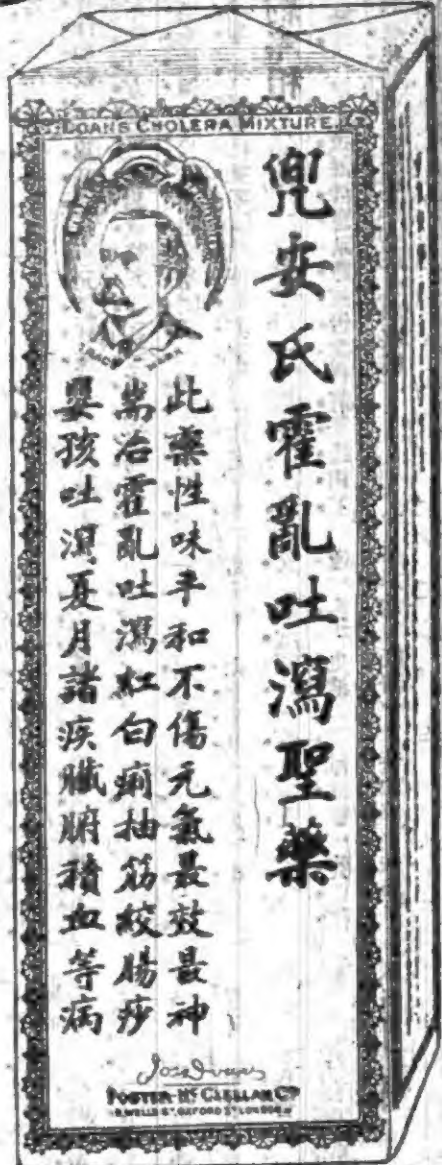 DOANS CHOLERA MIXTURE.
兜安氏霍亂吐瀉聖藥
此藥性味平和不傷元氣最效最神
耑治霍亂吐瀉紅白痢抽筋絞腸痧
嬰孩吐瀉夏月諸疾臟腑積血等病
TRADE MARK
FOSTER-McCLELLAN Co
8, WELLS ST, OXFORD ST LONDON